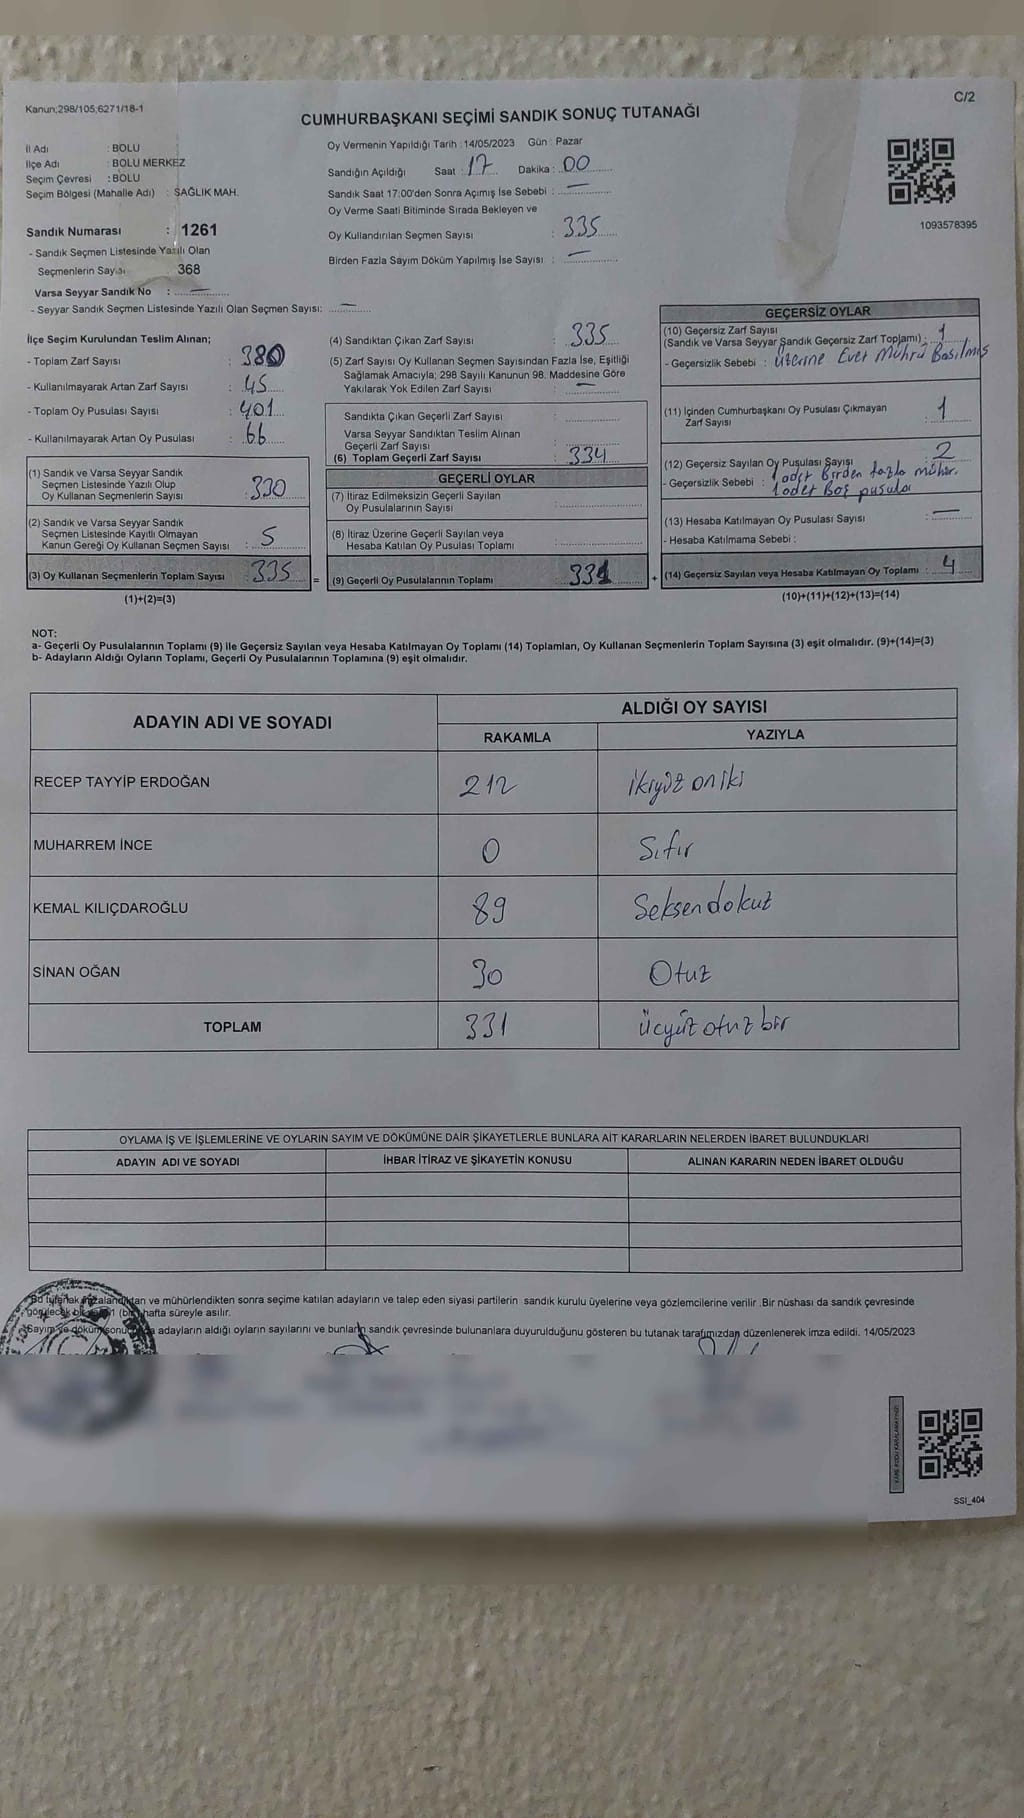 Kanun;298/105;6271/18-1
C/2
CUMHURBAŞKANI SEÇİMİ SANDIK SONUÇ TUTANAĞI
İl Adı : BOLU
İlçe Adı : BOLU MERKEZ
Seçim Çevresi : BOLU
Seçim Bölgesi (Mahalle Adı) : SAĞLIK MAH.
Sandık Numarası : 1261
- Sandık Seçmen Listesinde Yazılı Olan
Seçmenlerin Sayısı 368
Varsa Seyyar Sandık No : —
- Seyyar Sandık Seçmen Listesinde Yazılı Olan Seçmen Sayısı: —
Oy Vermenin Yapıldığı Tarih :14/05/2023 Gün : Pazar
Sandığın Açıldığı Saat : 17 Dakika : 00
Sandık Saat 17:00'den Sonra Açımış İse Sebebi : —
Oy Verme Saati Bitiminde Sırada Bekleyen ve
Oy Kullandırılan Seçmen Sayısı : 335
Birden Fazla Sayım Döküm Yapılmış İse Sayısı : —
1093578395
İlçe Seçim Kurulundan Teslim Alınan;
- Toplam Zarf Sayısı : 380
- Kullanılmayarak Artan Zarf Sayısı : 45
- Toplam Oy Pusulası Sayısı : 401
- Kullanılmayarak Artan Oy Pusulası : 66
(1) Sandık ve Varsa Seyyar Sandık
Seçmen Listesinde Yazılı Olup
Oy Kullanan Seçmenlerin Sayısı : 330
(2) Sandık ve Varsa Seyyar Sandık
Seçmen Listesinde Kayıtlı Olmayan
Kanun Gereği Oy Kullanan Seçmen Sayısı : 5
(3) Oy Kullanan Seçmenlerin Toplam Sayısı : 335
(1)+(2)=(3)
(4) Sandıktan Çıkan Zarf Sayısı : 335
(5) Zarf Sayısı Oy Kullanan Seçmen Sayısından Fazla İse, Eşitliği
Sağlamak Amacıyla; 298 Sayılı Kanunun 98. Maddesine Göre
Yakılarak Yok Edilen Zarf Sayısı : —
Sandıkta Çıkan Geçerli Zarf Sayısı :
Varsa Seyyar Sandıktan Teslim Alınan
Geçerli Zarf Sayısı :
(6) Toplam Geçerli Zarf Sayısı : 334
GEÇERLİ OYLAR
(7) İtiraz Edilmeksizin Geçerli Sayılan
Oy Pusulalarının Sayısı :
(8) İtiraz Üzerine Geçerli Sayılan veya
Hesaba Katılan Oy Pusulası Toplamı :
= (9) Geçerli Oy Pusulalarının Toplamı : 331 +
GEÇERSİZ OYLAR
(10) Geçersiz Zarf Sayısı
(Sandık ve Varsa Seyyar Sandık Geçersiz Zarf Toplamı) : 1
- Geçersizlik Sebebi : Üzerine Evet Mührü Basılmış
(11) İçinden Cumhurbaşkanı Oy Pusulası Çıkmayan
Zarf Sayısı : 1
(12) Geçersiz Sayılan Oy Pusulası Sayısı : 2
- Geçersizlik Sebebi : 1 adet Birden fazla mühür.
1 adet Boş pusula
(13) Hesaba Katılmayan Oy Pusulası Sayısı : —
- Hesaba Katılmama Sebebi :
(14) Geçersiz Sayılan veya Hesaba Katılmayan Oy Toplamı : 4
(10)+(11)+(12)+(13)=(14)
NOT:
a- Geçerli Oy Pusulalarının Toplamı (9) ile Geçersiz Sayılan veya Hesaba Katılmayan Oy Toplamı (14) Toplamları, Oy Kullanan Seçmenlerin Toplam Sayısına (3) eşit olmalıdır. (9)+(14)=(3)
b- Adayların Aldığı Oyların Toplamı, Geçerli Oy Pusulalarının Toplamına (9) eşit olmalıdır.
ADAYIN ADI VE SOYADI
ALDIĞI OY SAYISI
RAKAMLA YAZIYLA
RECEP TAYYİP ERDOĞAN 212 ikiyüz on iki
MUHARREM İNCE 0 Sıfır
KEMAL KILIÇDAROĞLU 89 Seksen dokuz
SİNAN OĞAN 30 Otuz
TOPLAM 331 üçyüz otuz bir
OYLAMA İŞ VE İŞLEMLERİNE VE OYLARIN SAYIM VE DÖKÜMÜNE DAİR ŞİKAYETLERLE BUNLARA AİT KARARLARIN NELERDEN İBARET BULUNDUKLARI
ADAYIN ADI VE SOYADI İHBAR İTİRAZ VE ŞİKAYETİN KONUSU ALINAN KARARIN NEDEN İBARET OLDUĞU
Bu tutanak imzalandıktan ve mühürlendikten sonra seçime katılan adayların ve talep eden siyasi partilerin sandık kurulu üyelerine veya gözlemcilerine verilir .Bir nüshası da sandık çevresinde
görülecek bir 1 (bir) hafta süreyle asılır.
Sayım ve döküm adayların aldığı oyların sayılarını ve bunların sandık çevresinde bulunanlara duyurulduğunu gösteren bu tutanak tarafımızdan düzenlenerek imza edildi. 14/05/2023
SSI_404